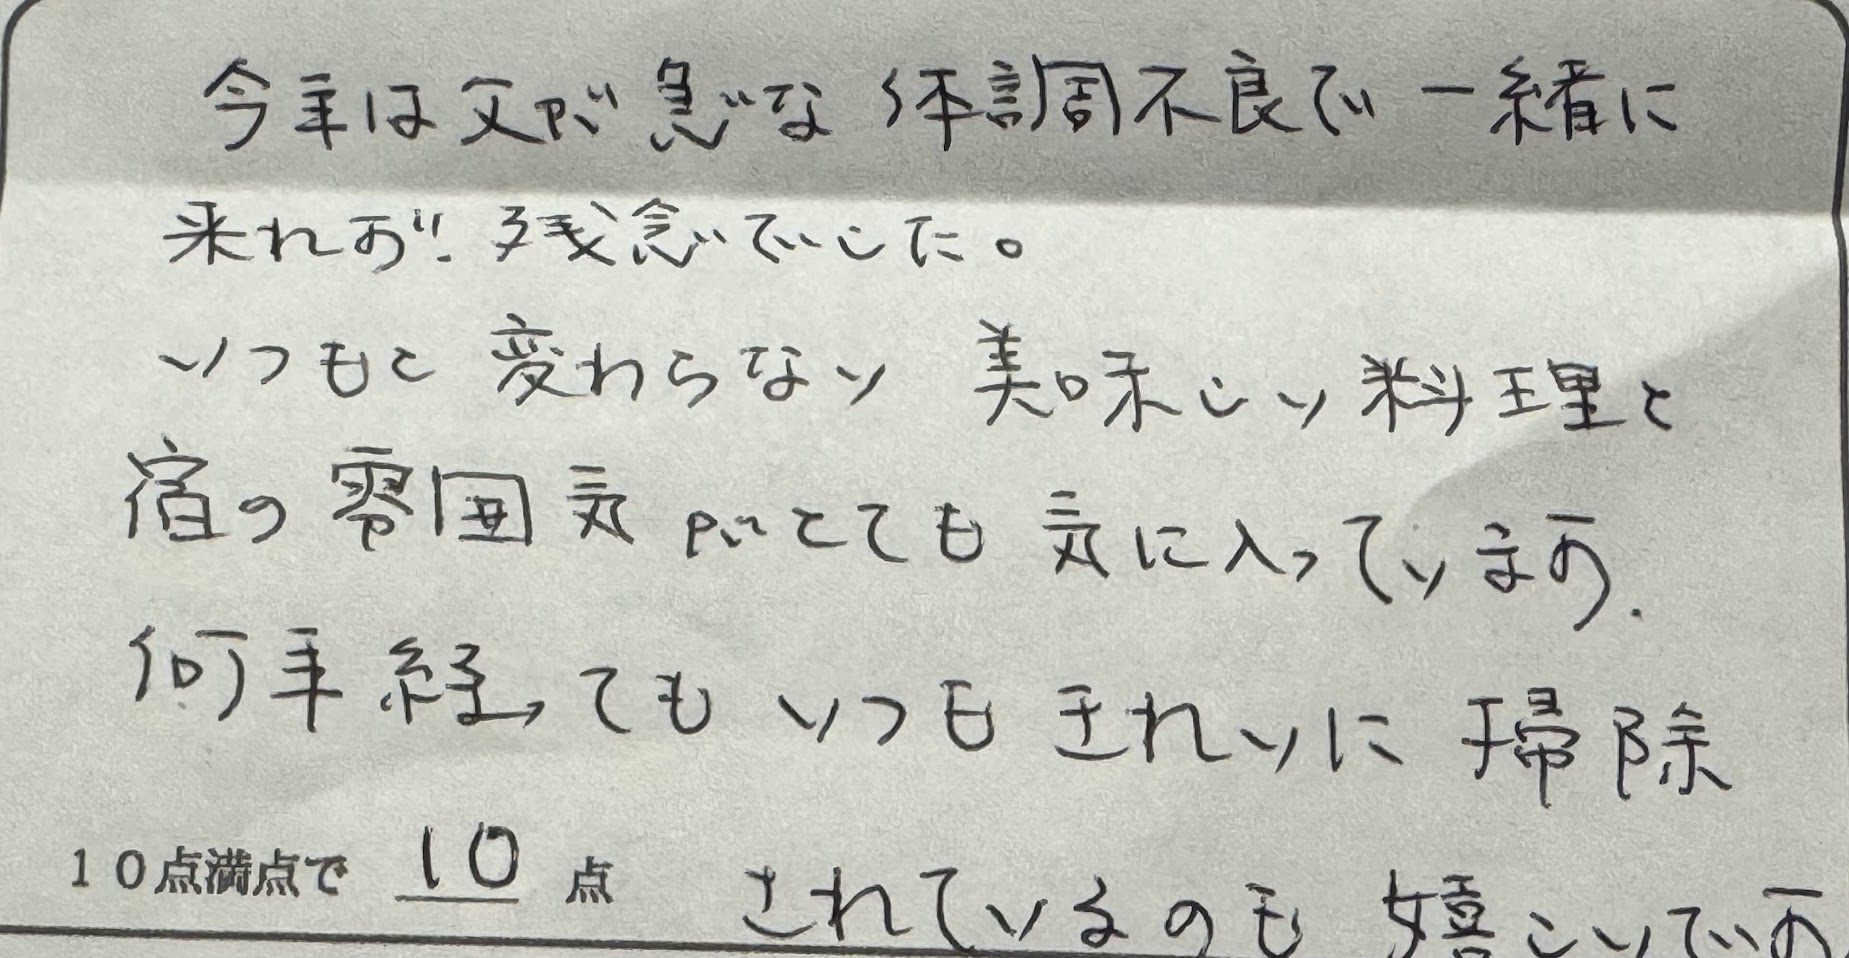 今年は父が急な体調不良で一緒に
来れず、残念でした。
いつもと変わらない美味しい料理と
宿の雰囲気がとても気に入っています。
何年経ってもいつもきれいに掃除
10点満点で 10 点 されているのも嬉しいです